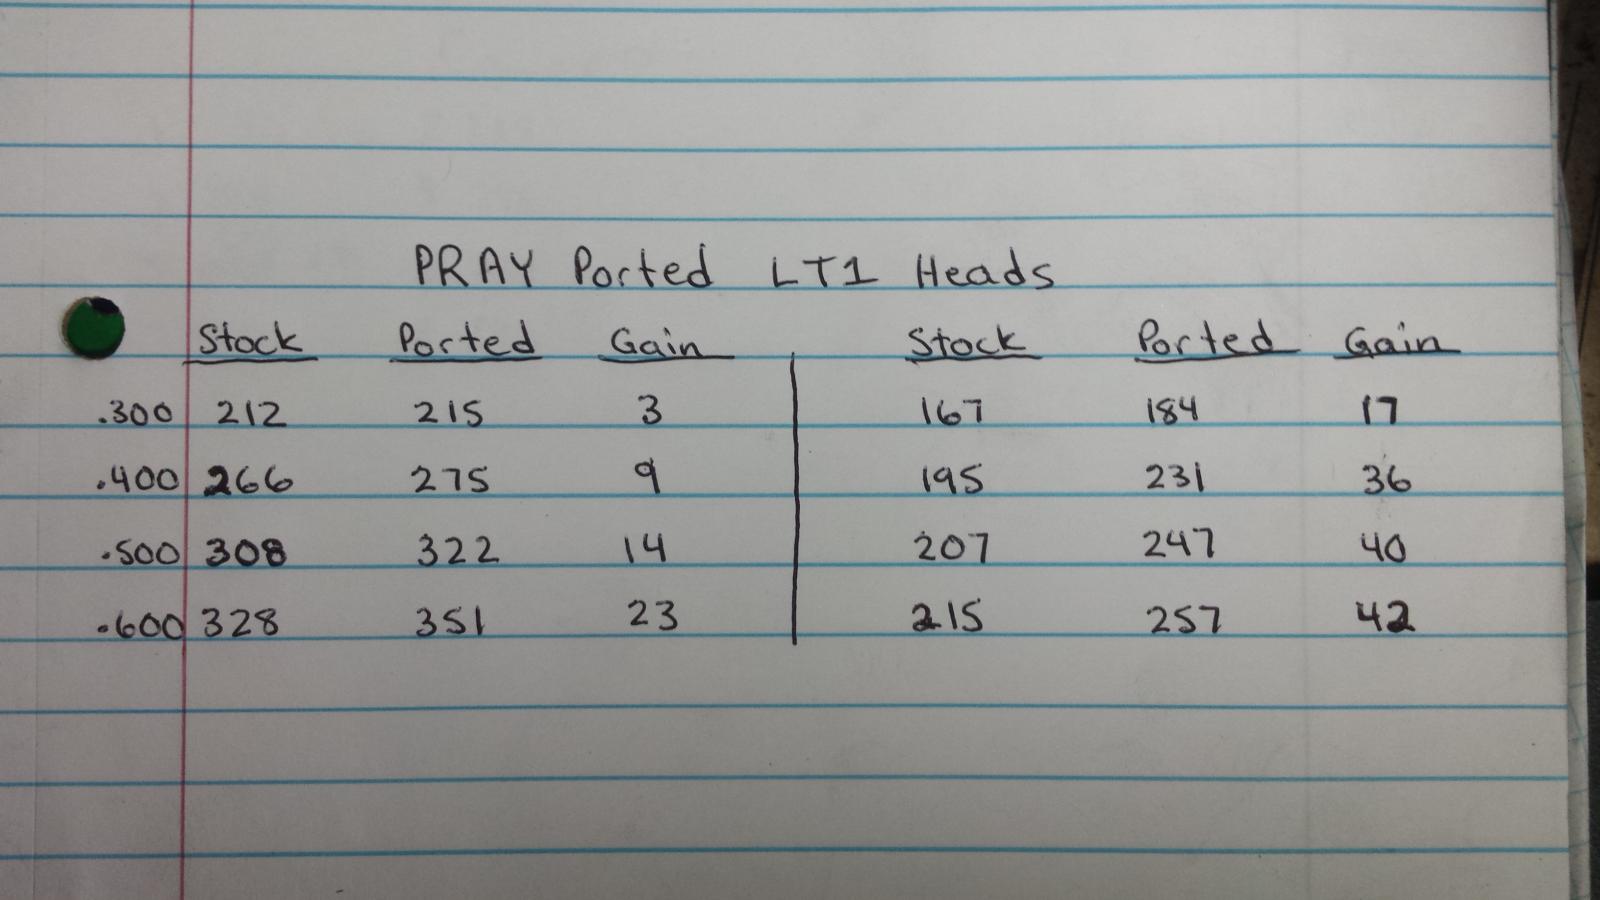 PRAY Ported LT1 Heads
Stock Ported Gain Stock Ported Gain
.300 212 215 3 167 184 17
.400 266 275 9 195 231 36
.500 308 322 14 207 247 40
.600 328 351 23 215 257 42